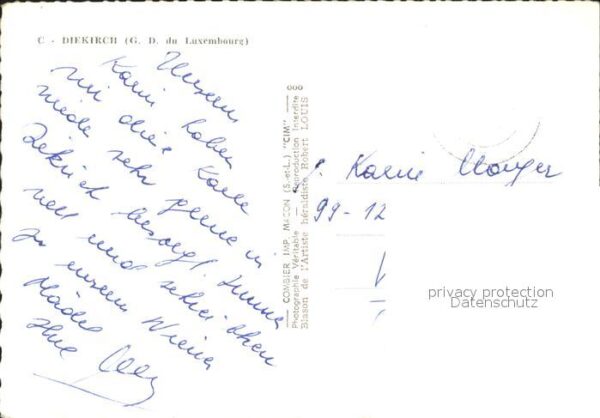 C - DIEKIRCH (G. D. du Luxembourg)
Unsern
Karin haben
wir diese Karte
wieder sehr gerne in
Diekirch besorgt. Immer
nett und
zu unserem Wiener
Mädel
Ihre
ooo
COMBIER IMP. MACON (S.-et-L.) "CIM"
Photographie Véritable — Reproduction Interdite
Blason de l'Artiste héraldiste Robert LOUIS
Karin
99-12
privacy protection
Datenschutz